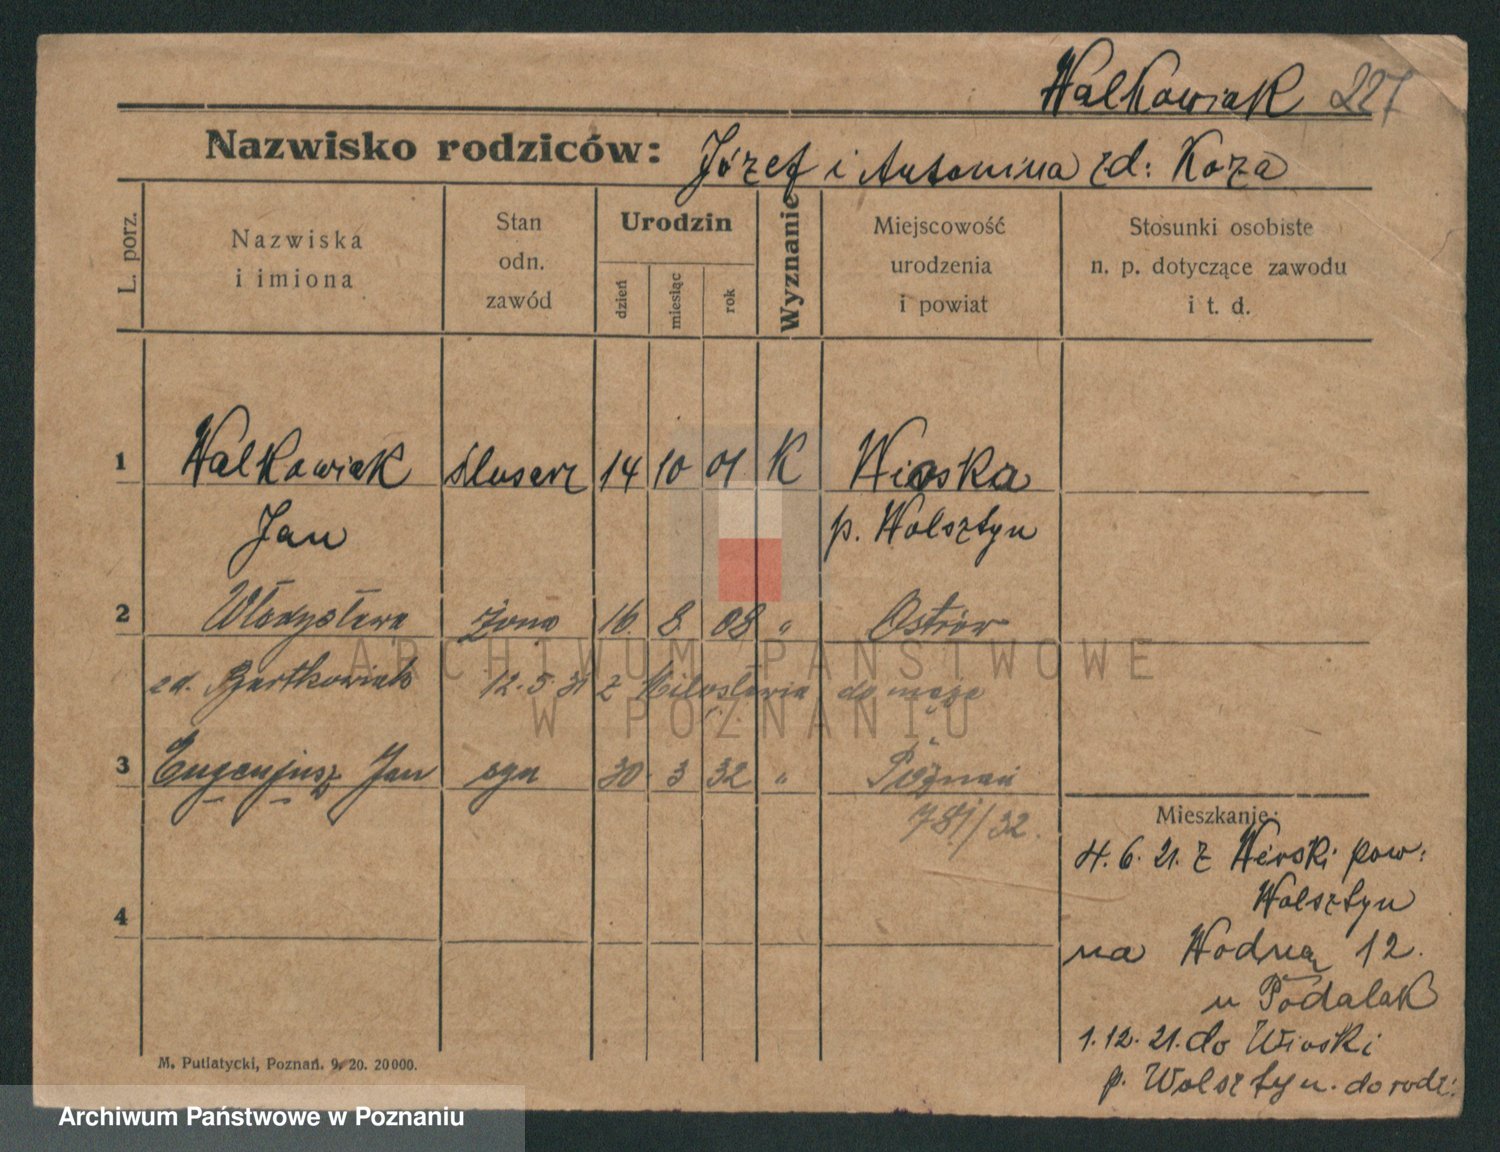 Walkowiak 227
Nazwisko rodziców: Józef i Antonina zd: Koza
L. porz.
Nazwiska
i imiona
Stan
odn.
zawód
Urodzin
dzień
miesiąc
rok
Wyznanie
Miejscowość
urodzenia
i powiat
Stosunki osobiste
n. p. dotyczące zawodu
i t. d.
1 Walkowiak ślusarz 14 10 01 K Wioska
Jan p. Wolsztyn
2 Władysława żona 16. 8. 08 " Ostrów
zd. Bartkowiak 12.5.31 z Miłosławia do męża
3 Eugenjusz Jan syn 30. 3 32 " Poznań
781/32.
4
Mieszkanie:
4. 6. 21. z Wioski pow:
Wolsztyn
na Wodną 12.
u Podalak
1. 12. 21. do Wioski
p. Wolsztyn. do rodz:
M. Putiatycki, Poznań. 9. 20. 20000.
ARCHIWUM PAŃSTWOWE
W POZNANIU
Archiwum Państwowe w Poznaniu